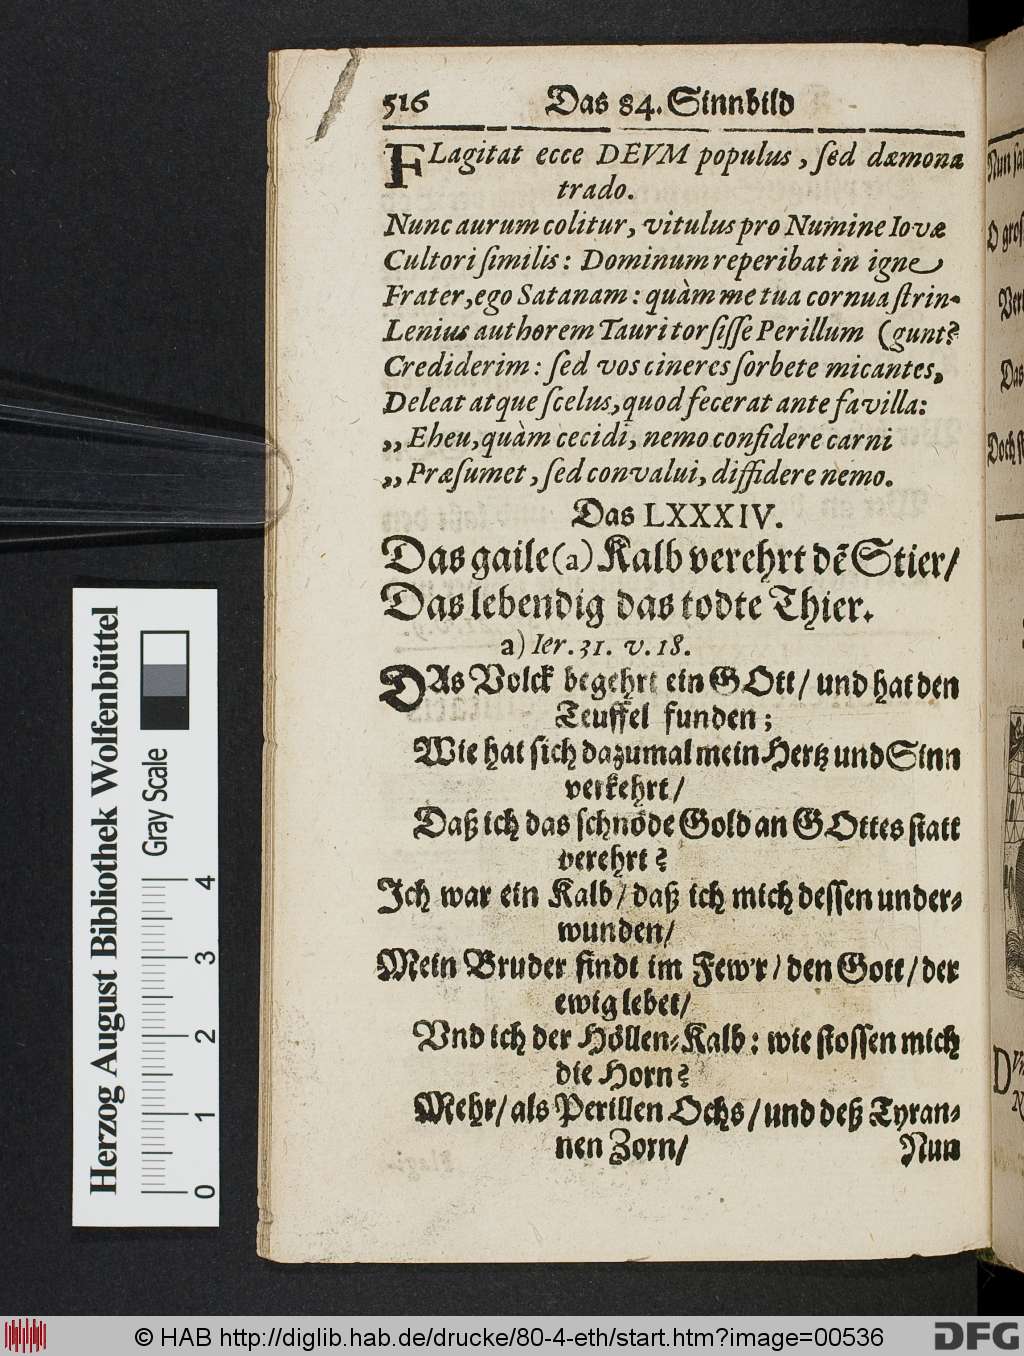 516 Das 84. Sinnbild
FLagitat ecce DEVM populus, sed dæmona
trado.
Nunc aurum colitur, vitulus pro Numine Iovæ
Cultori similis: Dominum reperibat in igne
Frater, ego Satanam: quàm me tua cornua strin-
Lenius authorem Tauri torsisse Perillum (gunt?
Crediderim: sed vos cineres sorbete micantes,
Deleat atque scelus, quod fecerat ante favilla:
„Eheu, quàm cecidi, nemo confidere carni
„Præsumet, sed convalui, diffidere nemo.
Das LXXXIV.
Das gaile (a) Kalb verehrt dē Stier/
Das lebendig das todte Thier.
a) Ier. 31. v. 18.
DAs Volck begehrt ein GOtt/ und hat den
Teuffel funden;
Wie hat sich dazumal mein Hertz und Sinn
verkehrt/
Daß ich das schnöde Gold an GOttes statt
verehrt?
Ich war ein Kalb/ daß ich mich dessen under-
wunden/
Mein Bruder findt im Few'r/ den Gott/ der
ewig lebet/
Vnd ich der Höllen-Kalb: wie stossen mich
die Horn?
Mehr/ als Perillen Ochs/ und deß Tyran-
nen Zorn/ Nun
Nun
Das
Herzog August Bibliothek Wolfenbüttel
Gray Scale
0 1 2 3 4
© HAB http://diglib.hab.de/drucke/80-4-eth/start.htm?image=00536
DFG